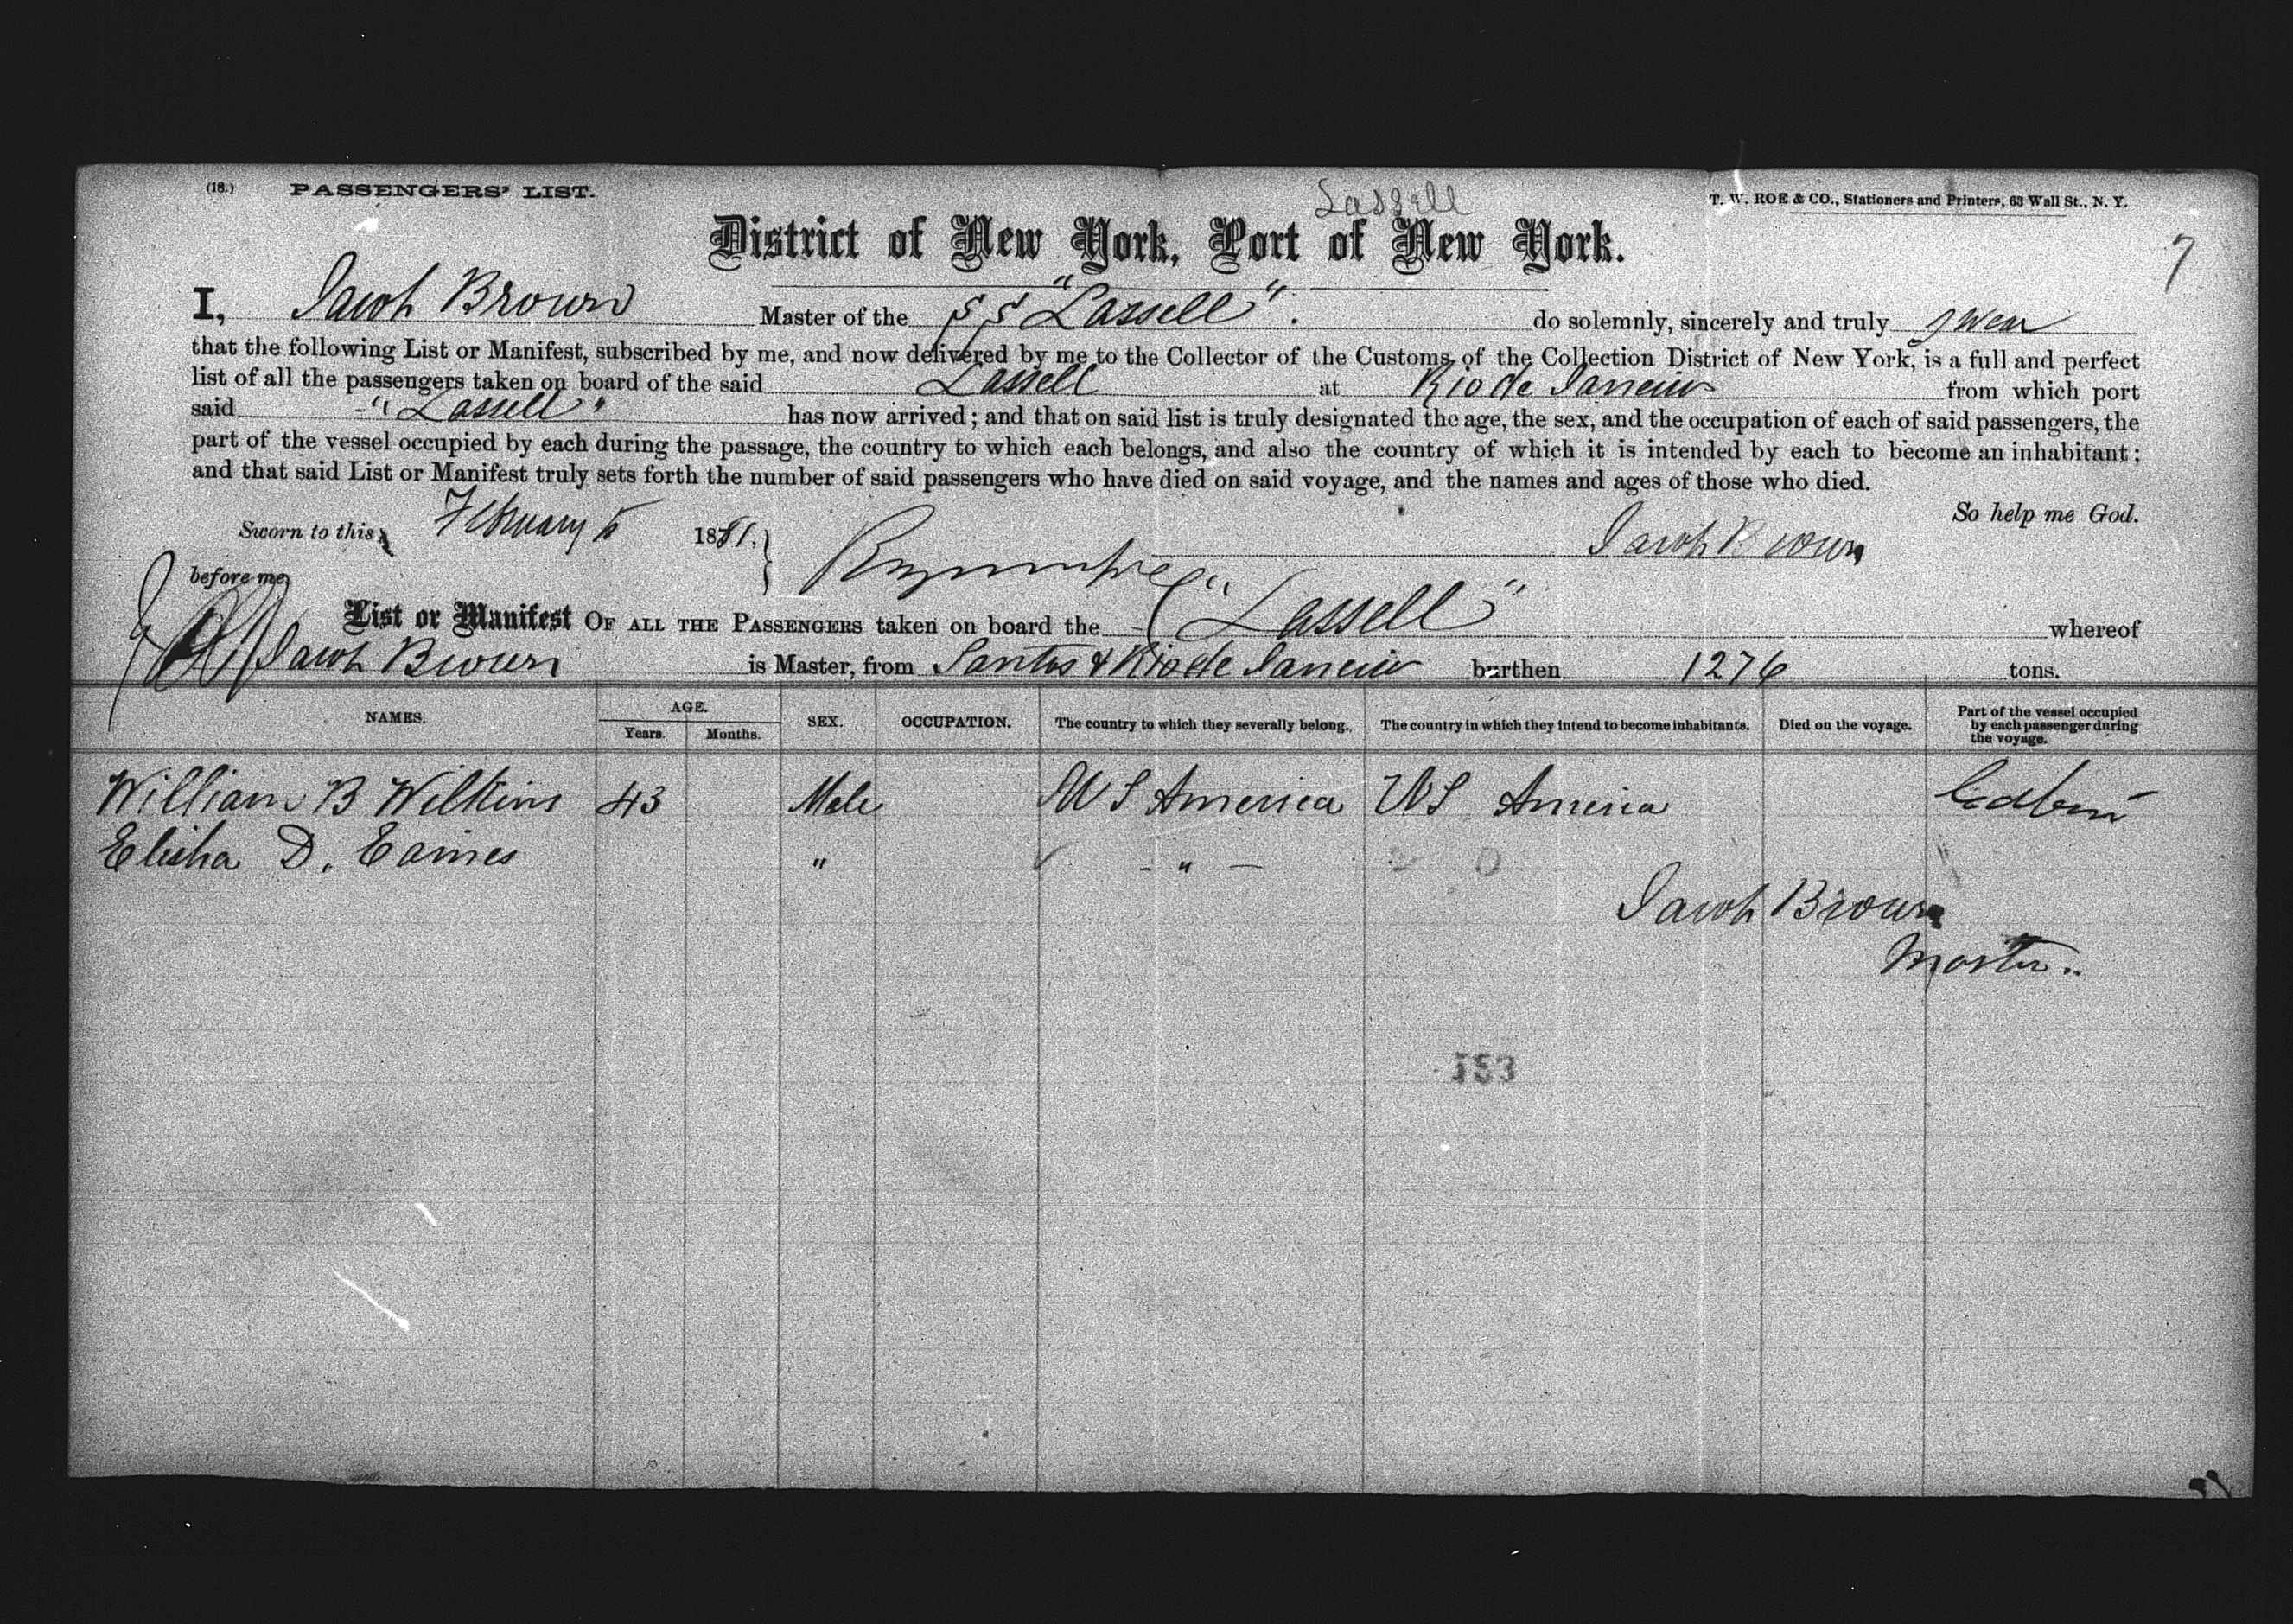 (18.) PASSENGERS' LIST.
Lassell
T. W. ROE & CO., Stationers and Printers, 63 Wall St., N. Y.
District of New York, Port of New York.
7
I, Jacob Brown Master of the SS "Lassell". do solemnly, sincerely and truly swear
that the following List or Manifest, subscribed by me, and now delivered by me to the Collector of the Customs of the Collection District of New York, is a full and perfect
list of all the passengers taken on board of the said Lassell at Rio de Janeiro from which port
said "Lassell" has now arrived; and that on said list is truly designated the age, the sex, and the occupation of each of said passengers, the
part of the vessel occupied by each during the passage, the country to which each belongs, and also the country of which it is intended by each to become an inhabitant;
and that said List or Manifest truly sets forth the number of said passengers who have died on said voyage, and the names and ages of those who died.
So help me God.
Sworn to this February 1881. Jacob Brown
before me
List or Manifest OF ALL THE PASSENGERS taken on board the "Lassell" whereof
Jacob Brown is Master, from Santos & Rio de Janeiro burthen 1276 tons.
NAMES. AGE. Years. Months. SEX. OCCUPATION. The country to which they severally belong. The country in which they intend to become inhabitants. Died on the voyage. Part of the vessel occupied by each passenger during the voyage.
William B Wilkins 43 Male U S America U S America
Elisha D. Eames " - " -
Jacob Brown
Master..
153